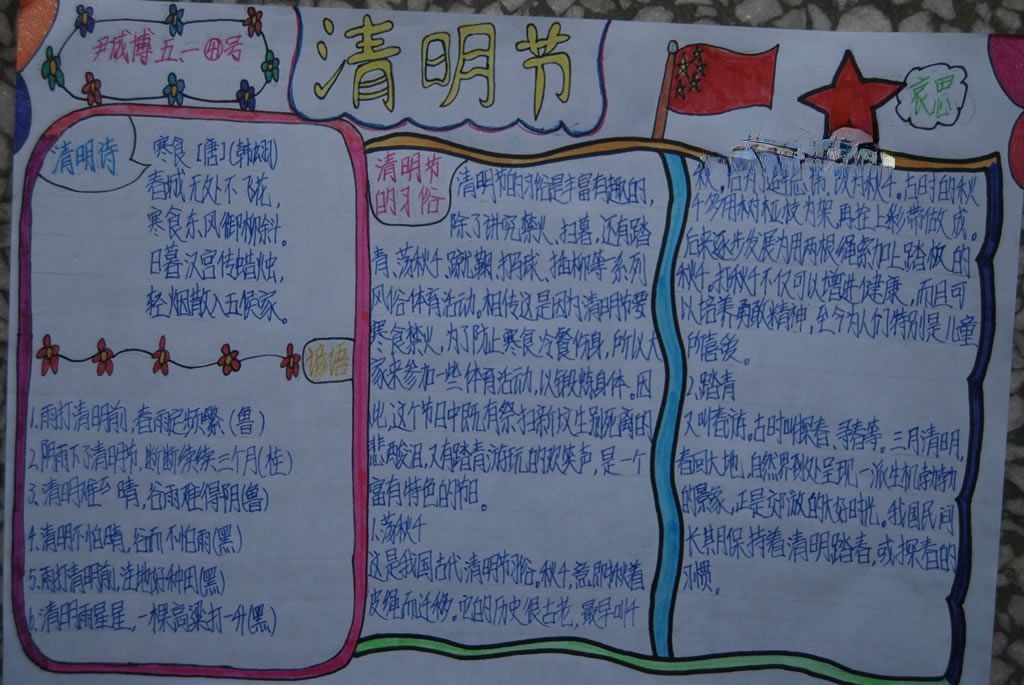 尹成博五、一㊶号
清明节
哀思
清明诗
寒食 [唐] (韩翃)
春城无处不飞花,
寒食东风御柳斜。
日暮汉宫传蜡烛,
轻烟散入五侯家。
谚语
1.雨打清明前,春雨定频繁(鲁)
2.阴雨下了清明节,断断续续三个月(桂)
3.清明难得晴,谷雨难得阴(鲁)
4.清明不怕晴,谷雨不怕雨(黑)
5.雨打清明前,洼地好种田(黑)
6.清明雨星星,一棵高粱打一升(黑)
清明节
的习俗
清明节的习俗是丰富有趣的,
除了讲究禁火、扫墓,还有踏
青、荡秋千、蹴鞠、打马球、插柳等系列
风俗体育活动。相传这是因为清明节要
寒食禁火,为了防止寒食冷餐伤身,所以大
家来参加一些体育活动,以锻炼身体。因
此,这个节日中既有祭扫新坟生别死离的
悲酸泪,又有踏青游玩的欢笑声,是一个
富有特色的节日。
1.荡秋千
这是我国古代清明节习俗。秋千,意即揪着
皮绳而迁移。它的历史很古老,最早叫
秋,后为 ,改为秋千。古时的秋
千多用树桠枝为架,再拴上彩带做成。
后来逐步发展为用两根绳索加上踏板的
秋千。打秋千不仅可以增进健康,而且可
以培养勇敢精神,至今为人们特别是儿童
所喜爱。
2.踏青
又叫春游。古时叫探春、寻春等。三月清明,
春回大地,自然界到处呈现一派生机勃勃
的景象,正是郊游的大好时光。我国民间
长期保持着清明踏青,或探春的
习惯。